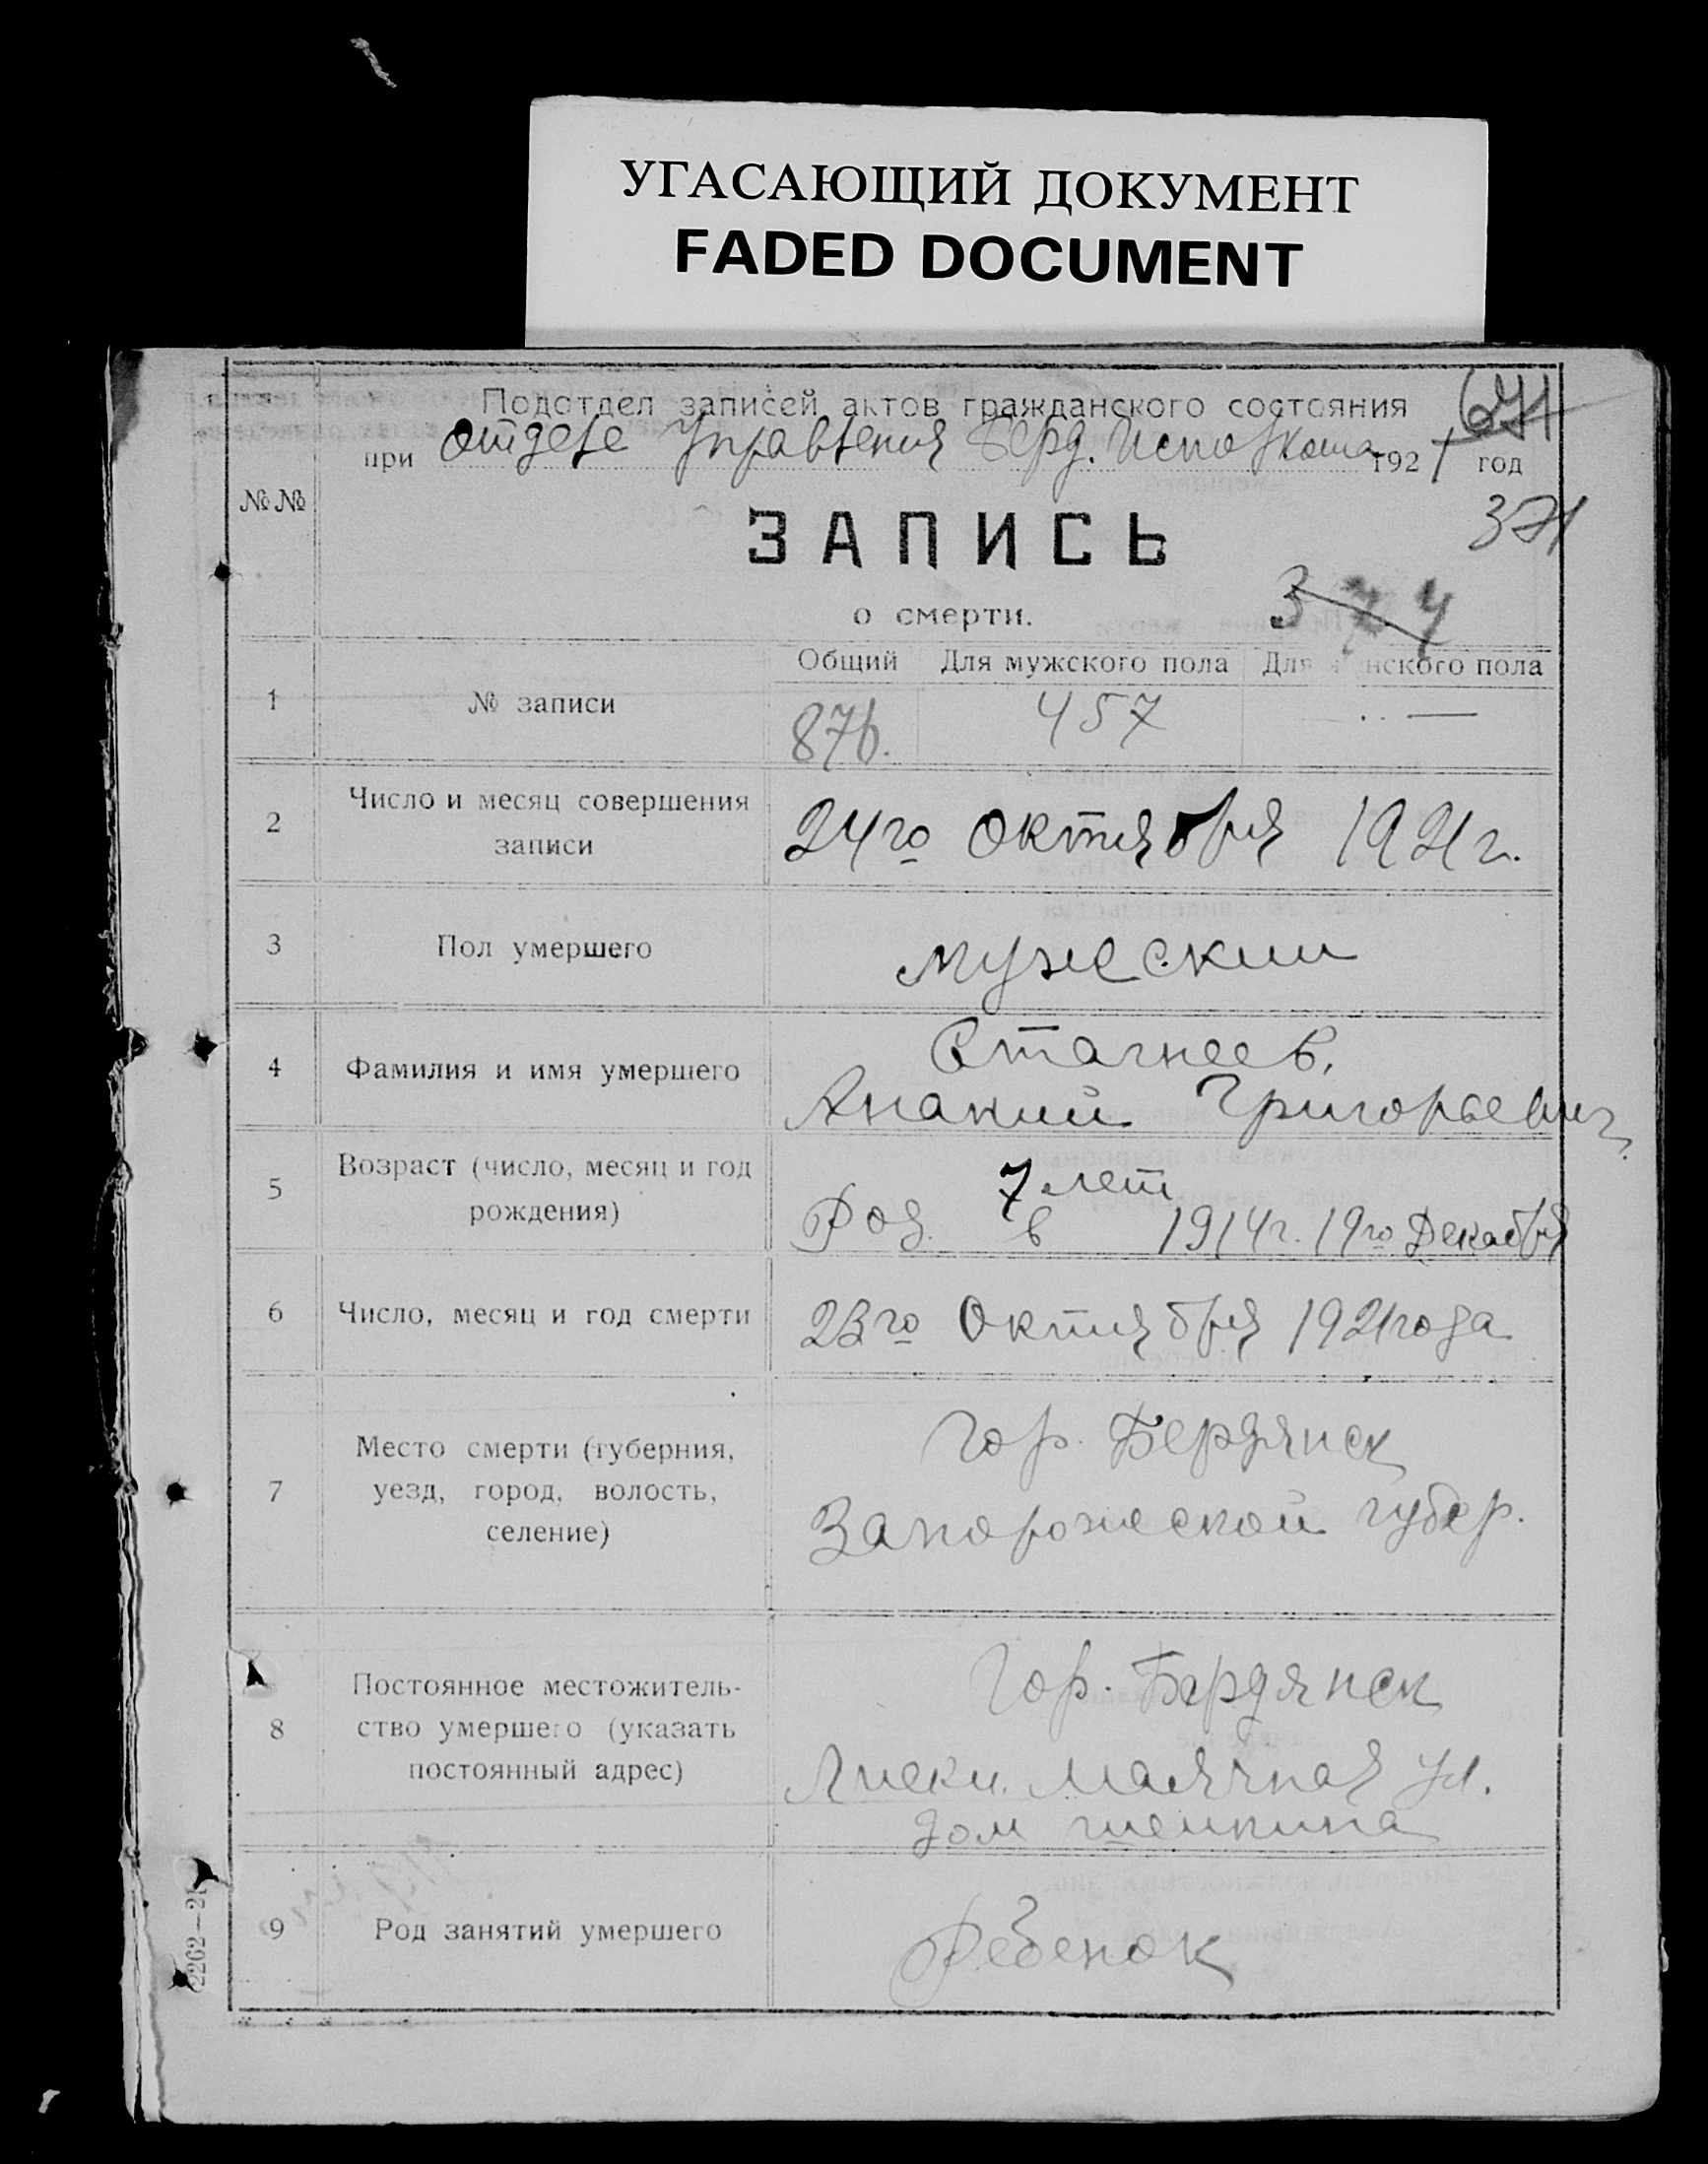 УГАСАЮЩИЙ ДОКУМЕНТ
FADED DOCUMENT
Подотдел записей актов гражданского состояния
671
при отделе Управления Берд. Исполкома 1921 год
№№
371
ЗАПИСЬ
374
о смерти.
Общий Для мужского пола Для женского пола
1 № записи 876. 457 —
2 Число и месяц совершения
записи
24го октября 1921г.
3 Пол умершего мужеский
4 Фамилия и имя умершего
Стагнеев,
Ананий Григорьевич
5 Возраст (число, месяц и год
рождения)
7 лет
Род. в 1914г. 19го Декабря
6 Число, месяц и год смерти 23го Октября 1921 года
7 Место смерти (губерния,
уезд, город, волость,
селение)
Гор. Бердянск
Запорожеской губер.
8 Постоянное местожитель-
ство умершего (указать
постоянный адрес)
Гор. Бердянск
Лиски. Маячная ул.
дом
9 Род занятий умершего Ребенок
2262—21